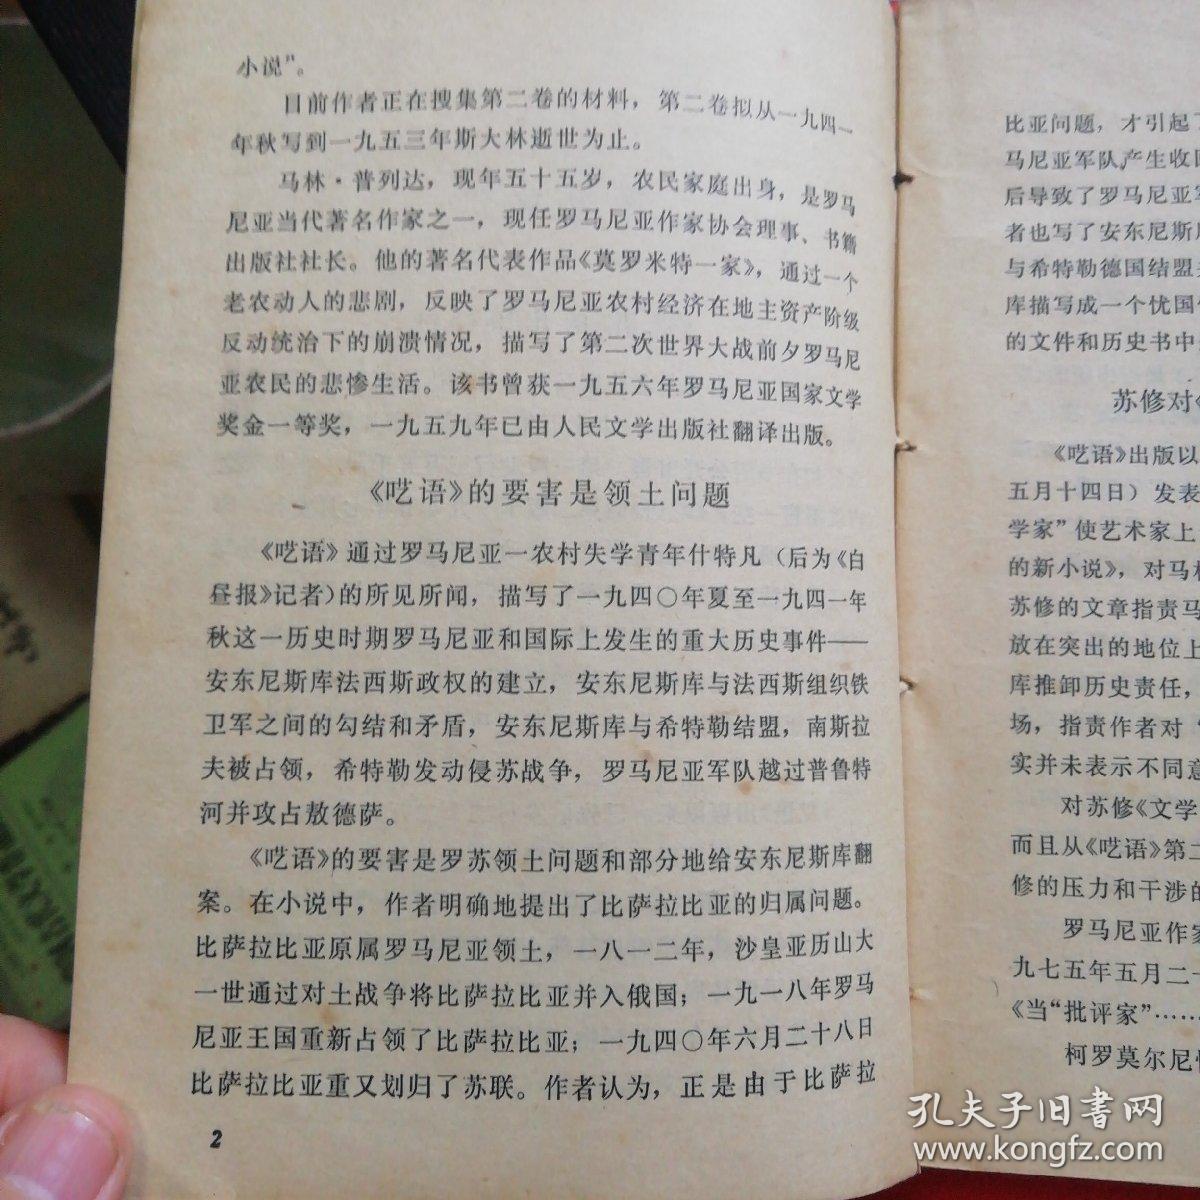 小说”。
目前作者正在搜集第二卷的材料，第二卷拟从一九四一
年秋写到一九五三年斯大林逝世为止。
马林·普列达，现年五十五岁，农民家庭出身，是罗马
尼亚当代著名作家之一，现任罗马尼亚作家协会理事、书籍
出版社社长。他的著名代表作品《莫罗米特一家》，通过一个
老农动人的悲剧，反映了罗马尼亚农村经济在地主资产阶级
反动统治下的崩溃情况，描写了第二次世界大战前夕罗马尼
亚农民的悲惨生活。该书曾获一九五六年罗马尼亚国家文学
奖金一等奖，一九五九年已由人民文学出版社翻译出版。
《呓语》的要害是领土问题
《呓语》通过罗马尼亚一农村失学青年什特凡（后为《白
昼报》记者）的所见所闻，描写了一九四〇年夏至一九四一年
秋这一历史时期罗马尼亚和国际上发生的重大历史事件——
安东尼斯库法西斯政权的建立，安东尼斯库与法西斯组织铁
卫军之间的勾结和矛盾，安东尼斯库与希特勒结盟，南斯拉
夫被占领，希特勒发动侵苏战争，罗马尼亚军队越过普鲁特
河并攻占敖德萨。
《呓语》的要害是罗苏领土问题和部分地给安东尼斯库翻
案。在小说中，作者明确地提出了比萨拉比亚的归属问题。
比萨拉比亚原属罗马尼亚领土，一八一二年，沙皇亚历山大
一世通过对土战争将比萨拉比亚并入俄国；一九一八年罗马
尼亚王国重新占领了比萨拉比亚；一九四〇年六月二十八日
比萨拉比亚重又划归了苏联。作者认为，正是由于比萨拉
2
比亚问题，才引起了
马尼亚军队产生收回
后导致了罗马尼亚军
者也写了安东尼斯库
与希特勒德国结盟
库描写成一个忧国
的文件和历史书中
苏修对《
《呓语》出版以
五月十四日）发表
学家”使艺术家上
的新小说》，对马林
苏修的文章指责马
放在突出的地位上
库推卸历史责任，
场，指责作者对“
实并未表示不同意
对苏修《文学
而且从《呓语》第二
修的压力和干涉的
罗马尼亚作家
九七五年五月二十
《当“批评家”……
柯罗莫尔尼
孔夫子旧书网
www.kongfz.com